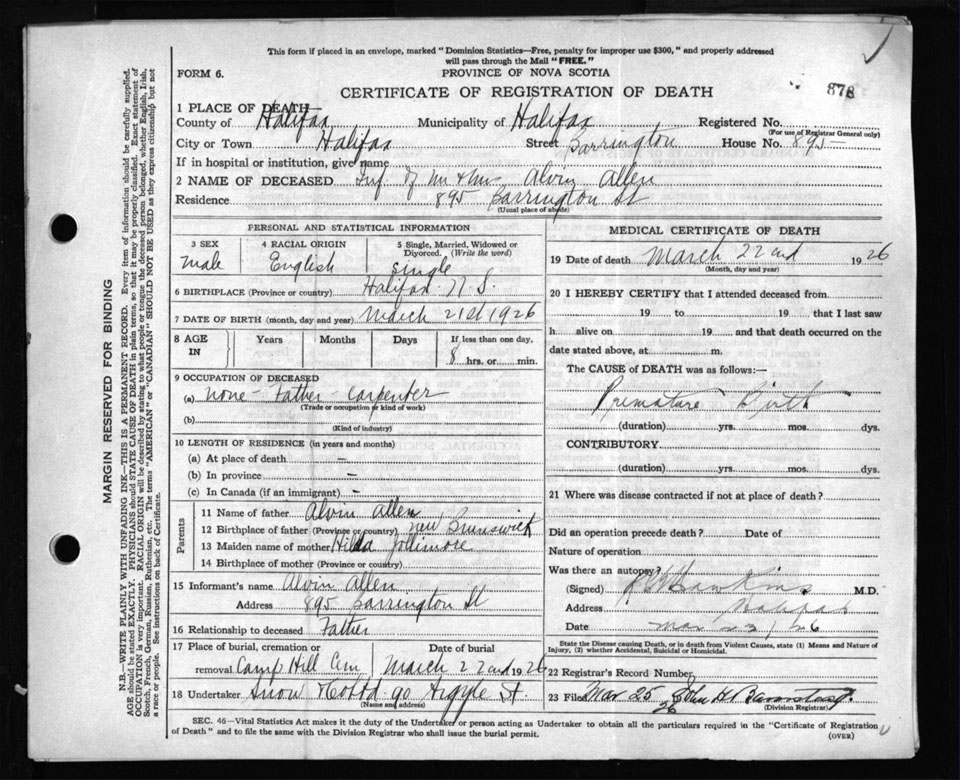 This form if placed in an envelope, marked "Dominion Statistics—Free, penalty for improper use $300," and properly addressed
will pass through the Mail "FREE."
FORM 6.
PROVINCE OF NOVA SCOTIA
CERTIFICATE OF REGISTRATION OF DEATH
878
1 PLACE OF DEATH—
County of Halifax Municipality of Halifax Registered No.
(For use of Registrar General only)
City or Town Halifax Street Barrington House No. 895
If in hospital or institution, give name
2 NAME OF DECEASED Inf. of Mr & Mrs Alvin Allen
Residence 895 Barrington St
(Usual place of abode)
PERSONAL AND STATISTICAL INFORMATION
3 SEX 4 RACIAL ORIGIN 5 Single, Married, Widowed or
Divorced. (Write the word)
male English Single
6 BIRTHPLACE (Province or country) Halifax N.S.
7 DATE OF BIRTH (month, day and year) March 21st 1926
8 AGE IN Years Months Days If less than one day,
8 hrs. or min.
9 OCCUPATION OF DECEASED
(a) none - Father - Carpenter
(Trade or occupation or kind of work)
(b)
(Kind of industry)
10 LENGTH OF RESIDENCE (in years and months)
(a) At place of death —
(b) In province —
(c) In Canada (if an immigrant) -
Parents
11 Name of father Alvin Allen
12 Birthplace of father (Province or country) New Brunswick
13 Maiden name of mother Hilda Jollimore
14 Birthplace of mother (Province or country)
15 Informant's name Alvin Allen
Address 895 Barrington St
16 Relationship to deceased Father
17 Place of burial, cremation or Date of burial
removal Camp Hill Cem March 22nd 1926
18 Undertaker Snow & Co Ltd. 90 Argyle St.
(Name and address)
MEDICAL CERTIFICATE OF DEATH
19 Date of death March 22nd 1926
(Month, day and year)
20 I HEREBY CERTIFY that I attended deceased from
19 to 19 that I last saw
h alive on 19 and that death occurred on the
date stated above, at m.
The CAUSE of DEATH was as follows:—
Premature Birth
(duration) yrs. mos. dys.
CONTRIBUTORY
(duration) yrs. mos. dys.
21 Where was disease contracted if not at place of death?
Did an operation precede death? Date of
Nature of operation
Was there an autopsy?
(Signed) Hawkins M.D.
Address Halifax
Date Mar 23/26
State the Disease causing Death, or in death from Violent Causes, state (1) Means and Nature of
Injury, (2) whether Accidental, Suicidal or Homicidal.
22 Registrar's Record Number
23 Filed Mar 25 26 John H
(Division Registrar)
SEC. 46—Vital Statistics Act makes it the duty of the Undertaker or person acting as Undertaker to obtain all the particulars required in the "Certificate of Registration
of Death" and to file the same with the Division Registrar who shall issue the burial permit.
(OVER)
MARGIN RESERVED FOR BINDING
N.B.—WRITE PLAINLY WITH UNFADING INK—THIS IS A PERMANENT RECORD. Every item of information should be carefully supplied.
AGE should be stated EXACTLY. PHYSICIANS should STATE CAUSE OF DEATH in plain terms, so that it may be properly classified. Exact statement of
OCCUPATION is very important. RACIAL ORIGIN will be described by stating to what people or tongue the deceased person belonged, whether English, Irish,
Scotch, French, German, Russian, Ruthenian, etc. The terms "AMERICAN" or "CANADIAN" SHOULD NOT BE USED as they express citizenship but not
a race or people. See instructions on back of Certificate.